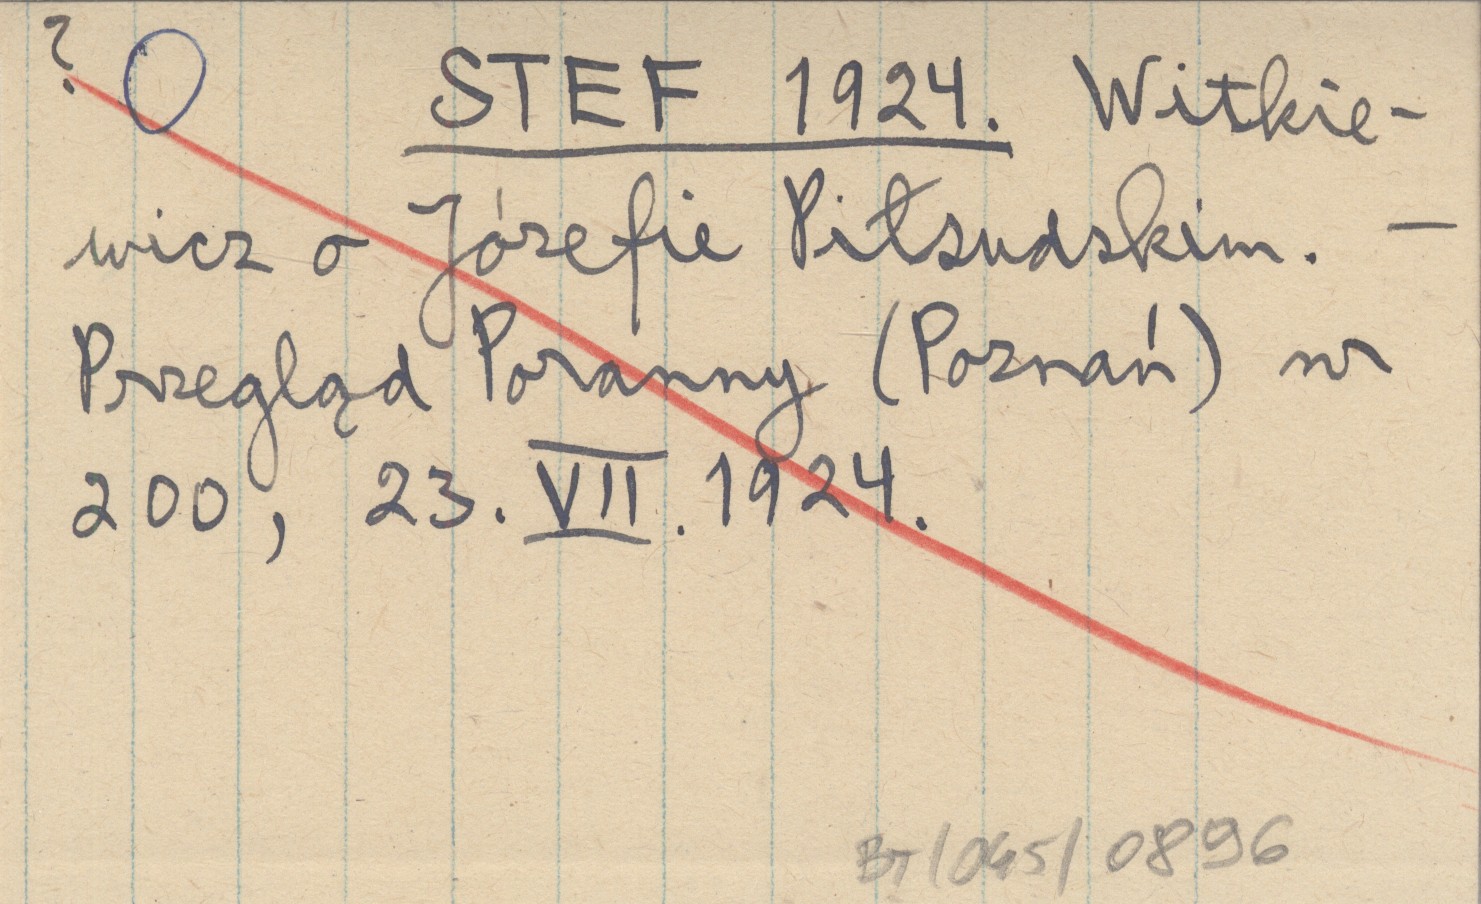 ? O STEF 1924. Witkie-
wicz o Józefie Piłsudskim. —
Przegląd Poranny (Poznań) nr
200, 23. VII. 1924.
BT/045/0896